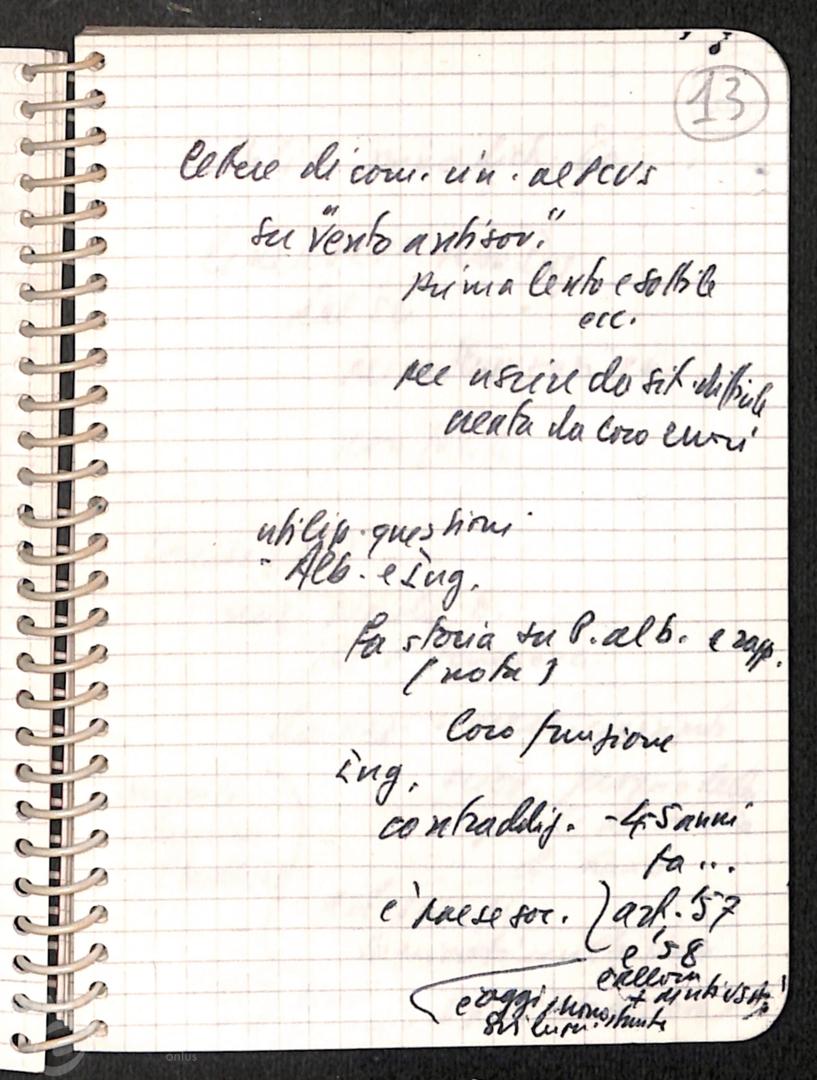 13
Lettere di com. cin. al PCUS
su "vento antisov."
prima lento e sottile
ecc.
per uscire da sit. difficile
creata da loro errori
utiliz. questioni
- Alb. e Jug.
fa storia su P. alb. e rapp.
(nota)
loro funzione
Jug.
contraddiz. - 4-5 anni
fa...
è paese soc. } art. '57
e '58
e allora
e oggi, nonostante
onlus